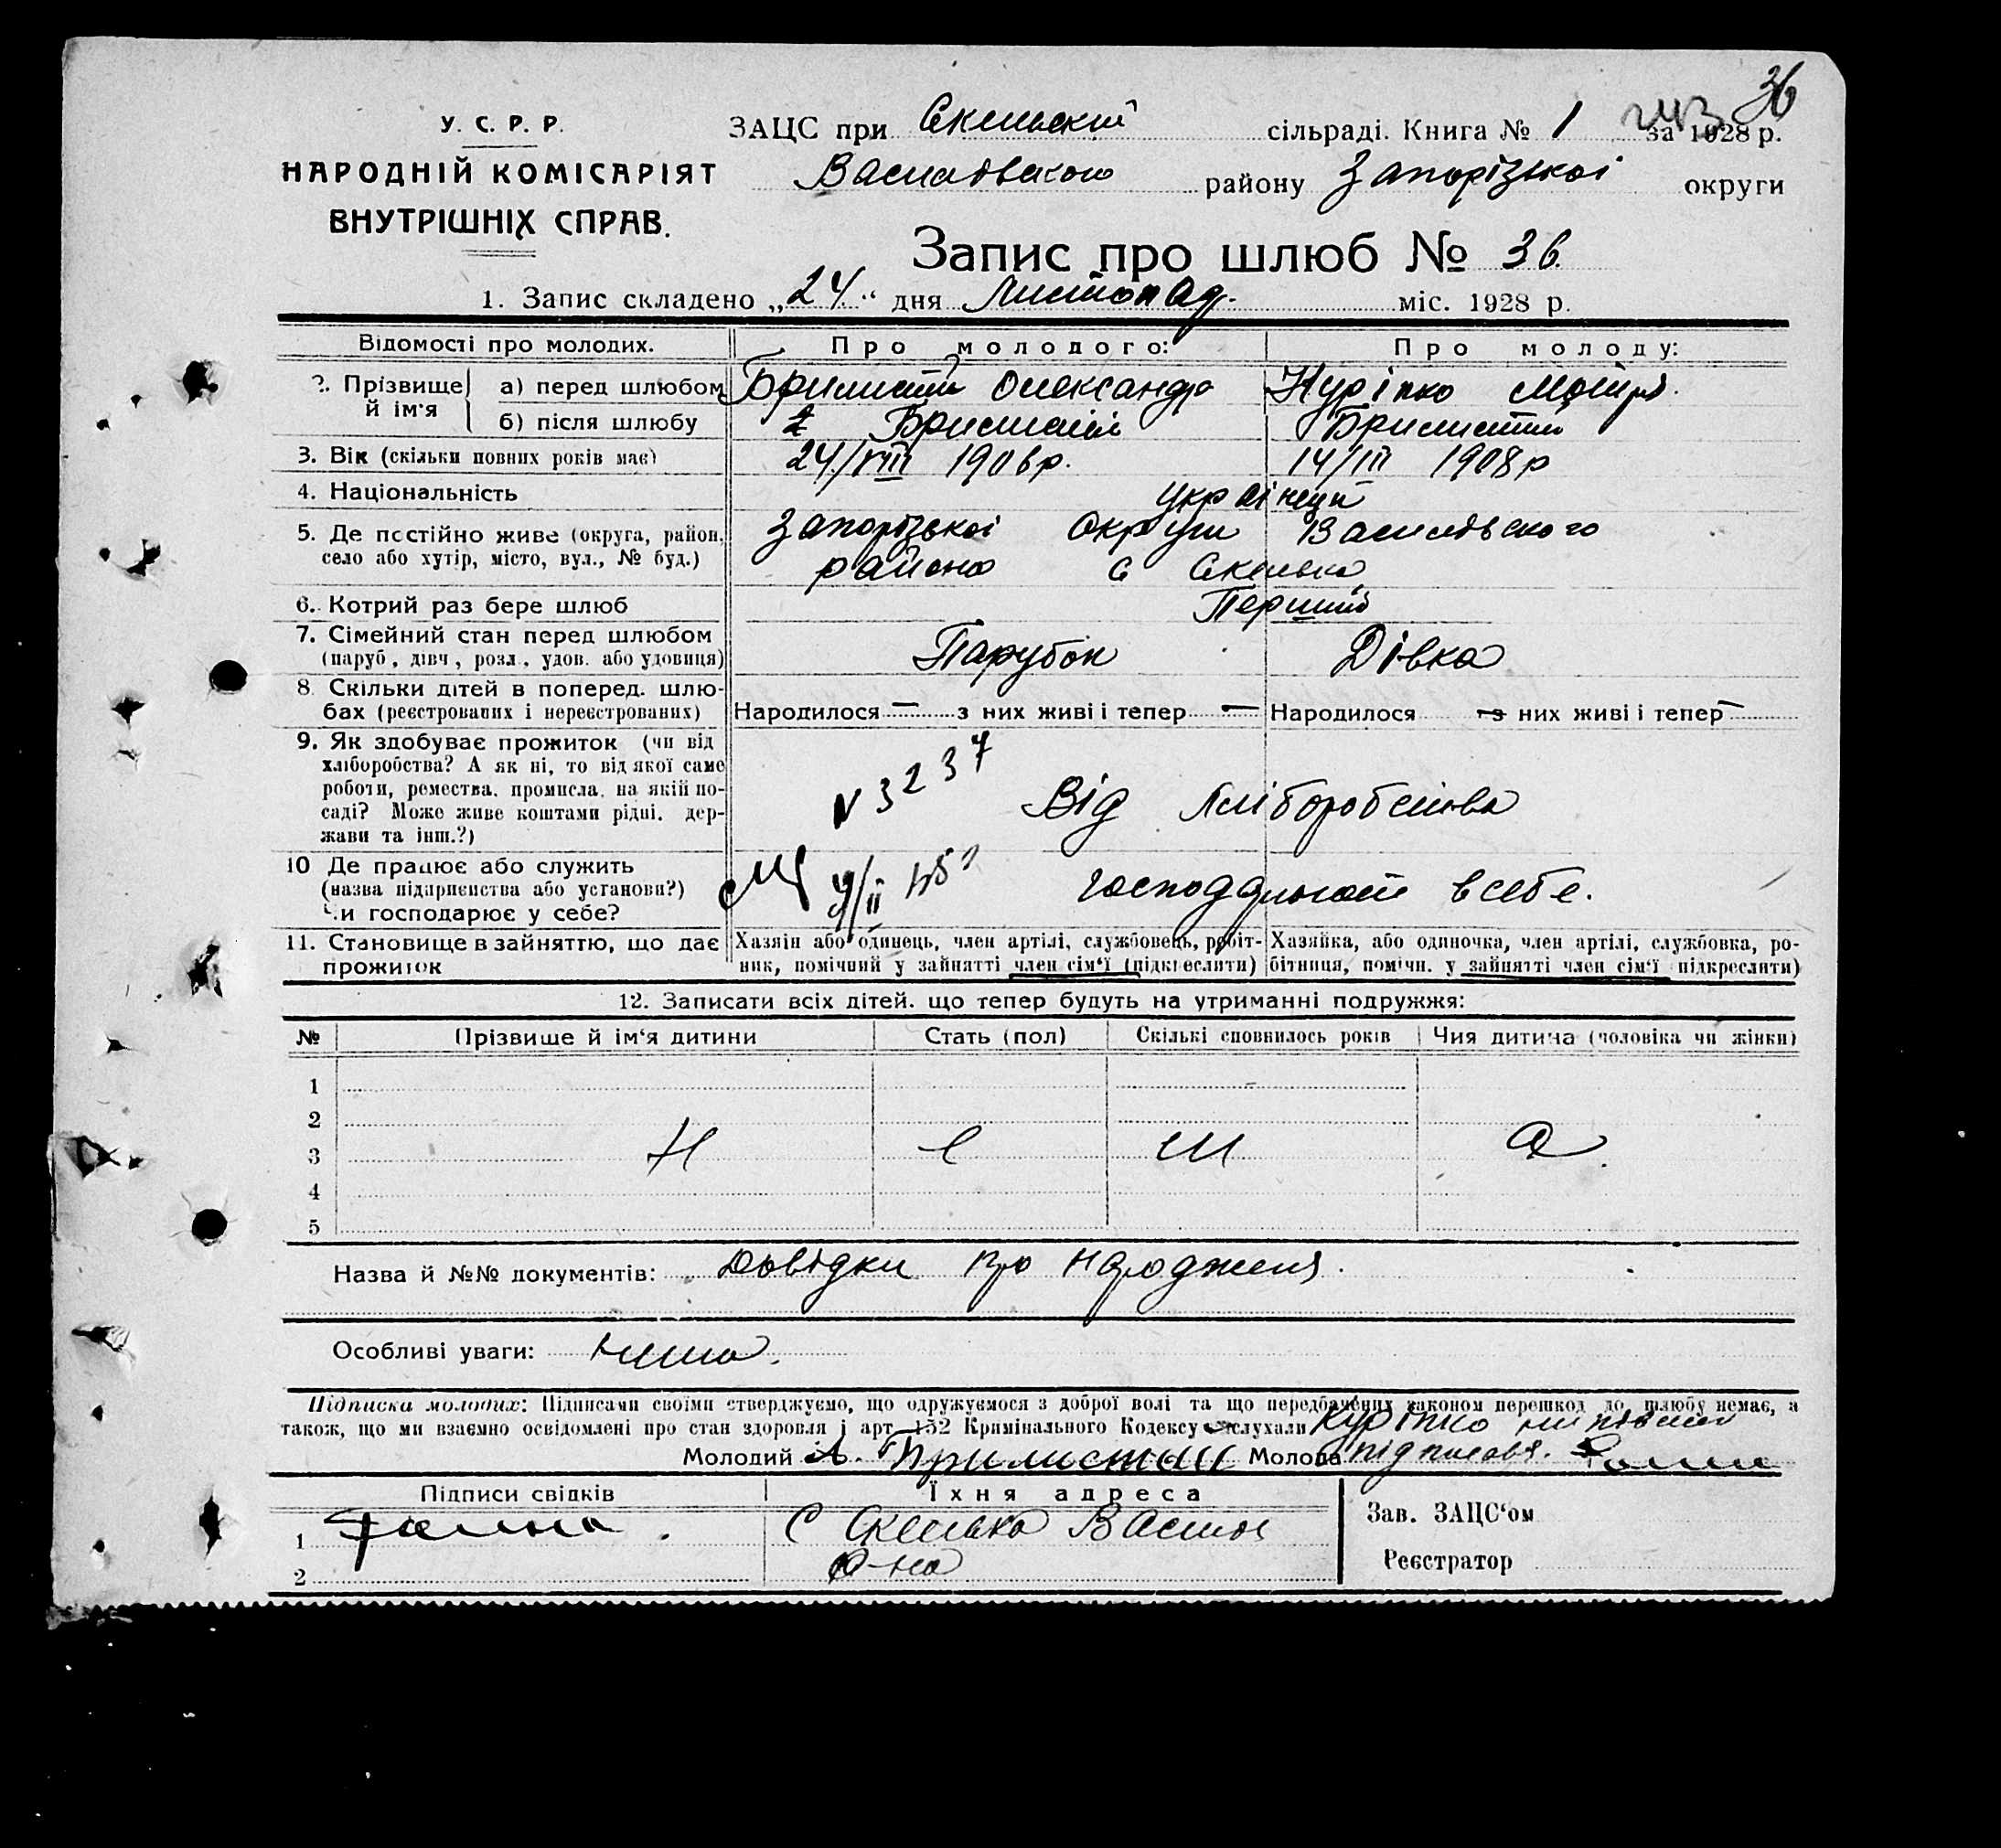 36
У. С. Р. Р.
ЗАЦС при Скельскій сільраді. Книга № 1 за 1928 р.
НАРОДНІЙ КОМІСАРІЯТ
Василівского району Запорізької округи
ВНУТРІШНІХ СПРАВ.
Запис про шлюб № 36
1. Запис складено „24“ дня Листопад міс. 1928 р.
Відомості про молодих. Про молодого: Про молоду:
2. Прізвище й ім'я а) перед шлюбом Олександр Курінко
б) після шлюбу
3. Вік (скільки повних років має) 24/VIII 1906 р. 14/III 1908 р
4. Національність українці
5. Де постійно живе (округа, район, Запорізької округи Василівского
село або хутір, місто, вул., № буд.) району с Скелька
6. Котрий раз бере шлюб Перший
7. Сімейний стан перед шлюбом
(паруб., дівч., розл., удов. або удовиця) Парубок Дівка
8. Скільки дітей в поперед. шлю-
бах (реєстрованих і нереєстрованих) Народилося — з них живі і тепер — Народилося — з них живі і тепер —
9. Як здобуває прожиток (чи від
хліборобства? А як ні, то від якої саме
роботи, ремества, промисла, на якій по-
саді? Може живе коштами рідні, дер-
жави та інш.?)
N 3237
Від хліборобства
10 Де працює або служить
(назва підприємства або установи?)
Чи господарює у себе?
9/II
в себе.
11. Становище в зайняттю, що дає Хазяїн або одинець, член артілі, службовець, робіт- Хазяйка, або одиночка, член артілі, службовка, ро-
прожиток ник, помічний у зайнятті член сім'ї (підкреслити) бітниця, помічн. у зайнятті член сім'ї підкреслити)
12. Записати всіх дітей, що тепер будуть на утриманні подружжя:
№ Прізвище й ім'я дитини Стать (пол) Скількі сповнилось років Чия дитина (чоловіка чи жінки)
1
2
3 Н е м а
4
5
Назва й №№ документів: Довідки про народженя.
Особливі уваги: нема.
Підписка молодих: Підписами своїми стверджуємо, що одружуємося з доброї волі та що передбачених законом перешкод до шлюбу немає, а
також, що ми взаємно освідомлені про стан здоровля і арт 152 Кримінального Кодексу слухали Курінко
Молодий А. Молода підписавя.
Підписи свідків Їхня адреса
1 С Скелька Васил
р-на
2
Зав. ЗАЦС'ом
Реєстратор